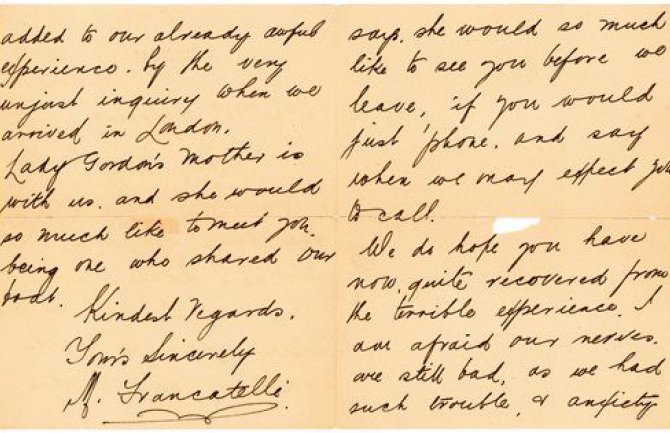 added to our already awful
experience. by the very
unjust inquiry when we
arrived in London.
Lady Gordon's Mother is
with us. and she would
so much like to meet you.
being one who shared our
boat.
Kindest Regards.
Your's Sincerely
M. Francatelli.
says. she would so much
like to see you before we
leave, if you would
just 'phone. and say
when we may expect you
to call.
We do hope you have
now, quite recovered from
the terrible experience. I
am afraid our nerves.
are still bad, as we had
such trouble, & anxiety